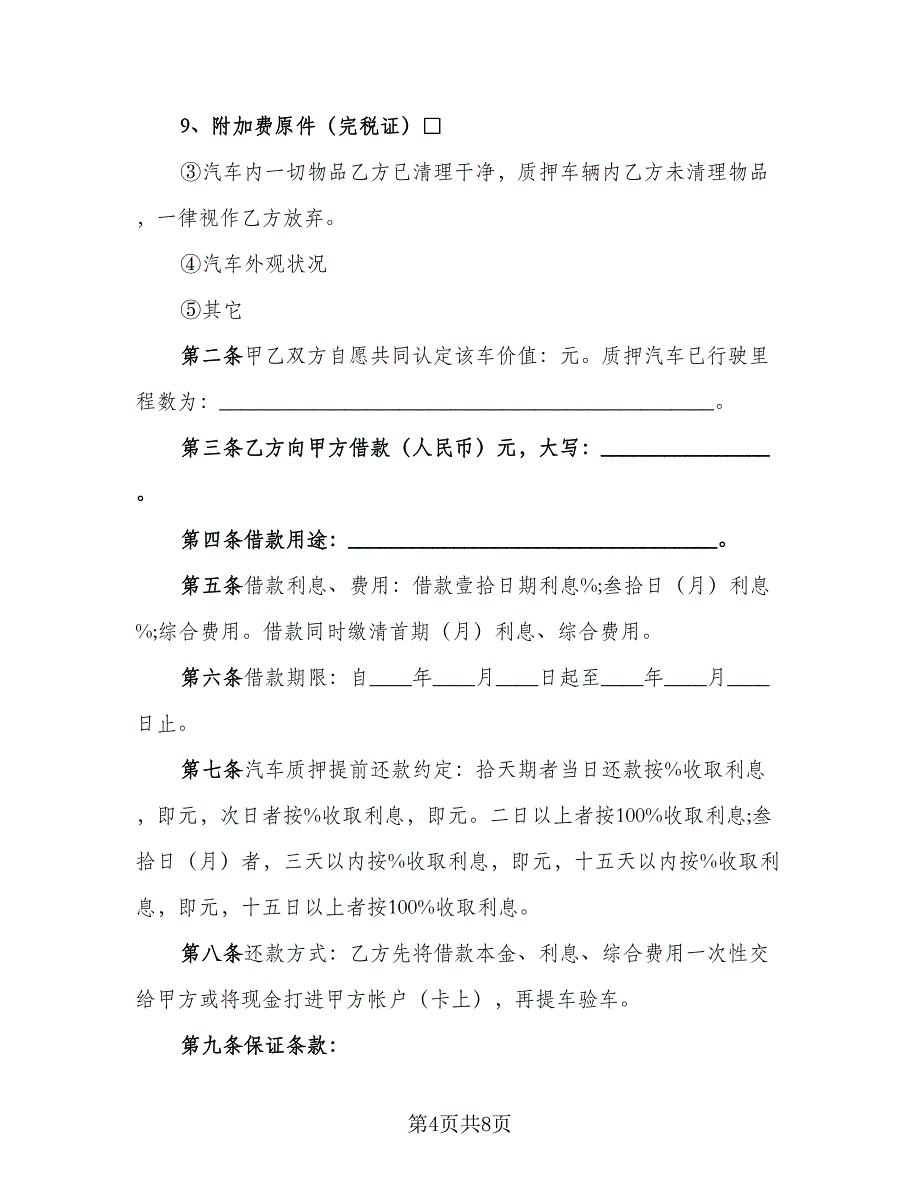 9、附加费原件（完税证）□
③汽车内一切物品乙方已清理干净，质押车辆内乙方未清理物品
，一律视作乙方放弃。
④汽车外观状况
⑤其它
第二条甲乙双方自愿共同认定该车价值：元。质押汽车已行驶里
程数为：_______________________________________________。
第三条乙方向甲方借款（人民币）元，大写：________________
。
第四条借款用途：___________________________________。
第五条借款利息、费用：借款壹拾日期利息%;叁拾日（月）利息
%;综合费用。借款同时缴清首期（月）利息、综合费用。
第六条借款期限：自____年____月____日起至____年____月____
日止。
第七条汽车质押提前还款约定：拾天期者当日还款按%收取利息
，即元，次日者按%收取利息，即元。二日以上者按100%收取利息;叁
拾日（月）者，三天以内按%收取利息，即元，十五天以内按%收取利
息，即元，十五日以上者按100%收取利息。
第八条还款方式：乙方先将借款本金、利息、综合费用一次性交
给甲方或将现金打进甲方帐户（卡上），再提车验车。
第九条保证条款：
第4页共8页